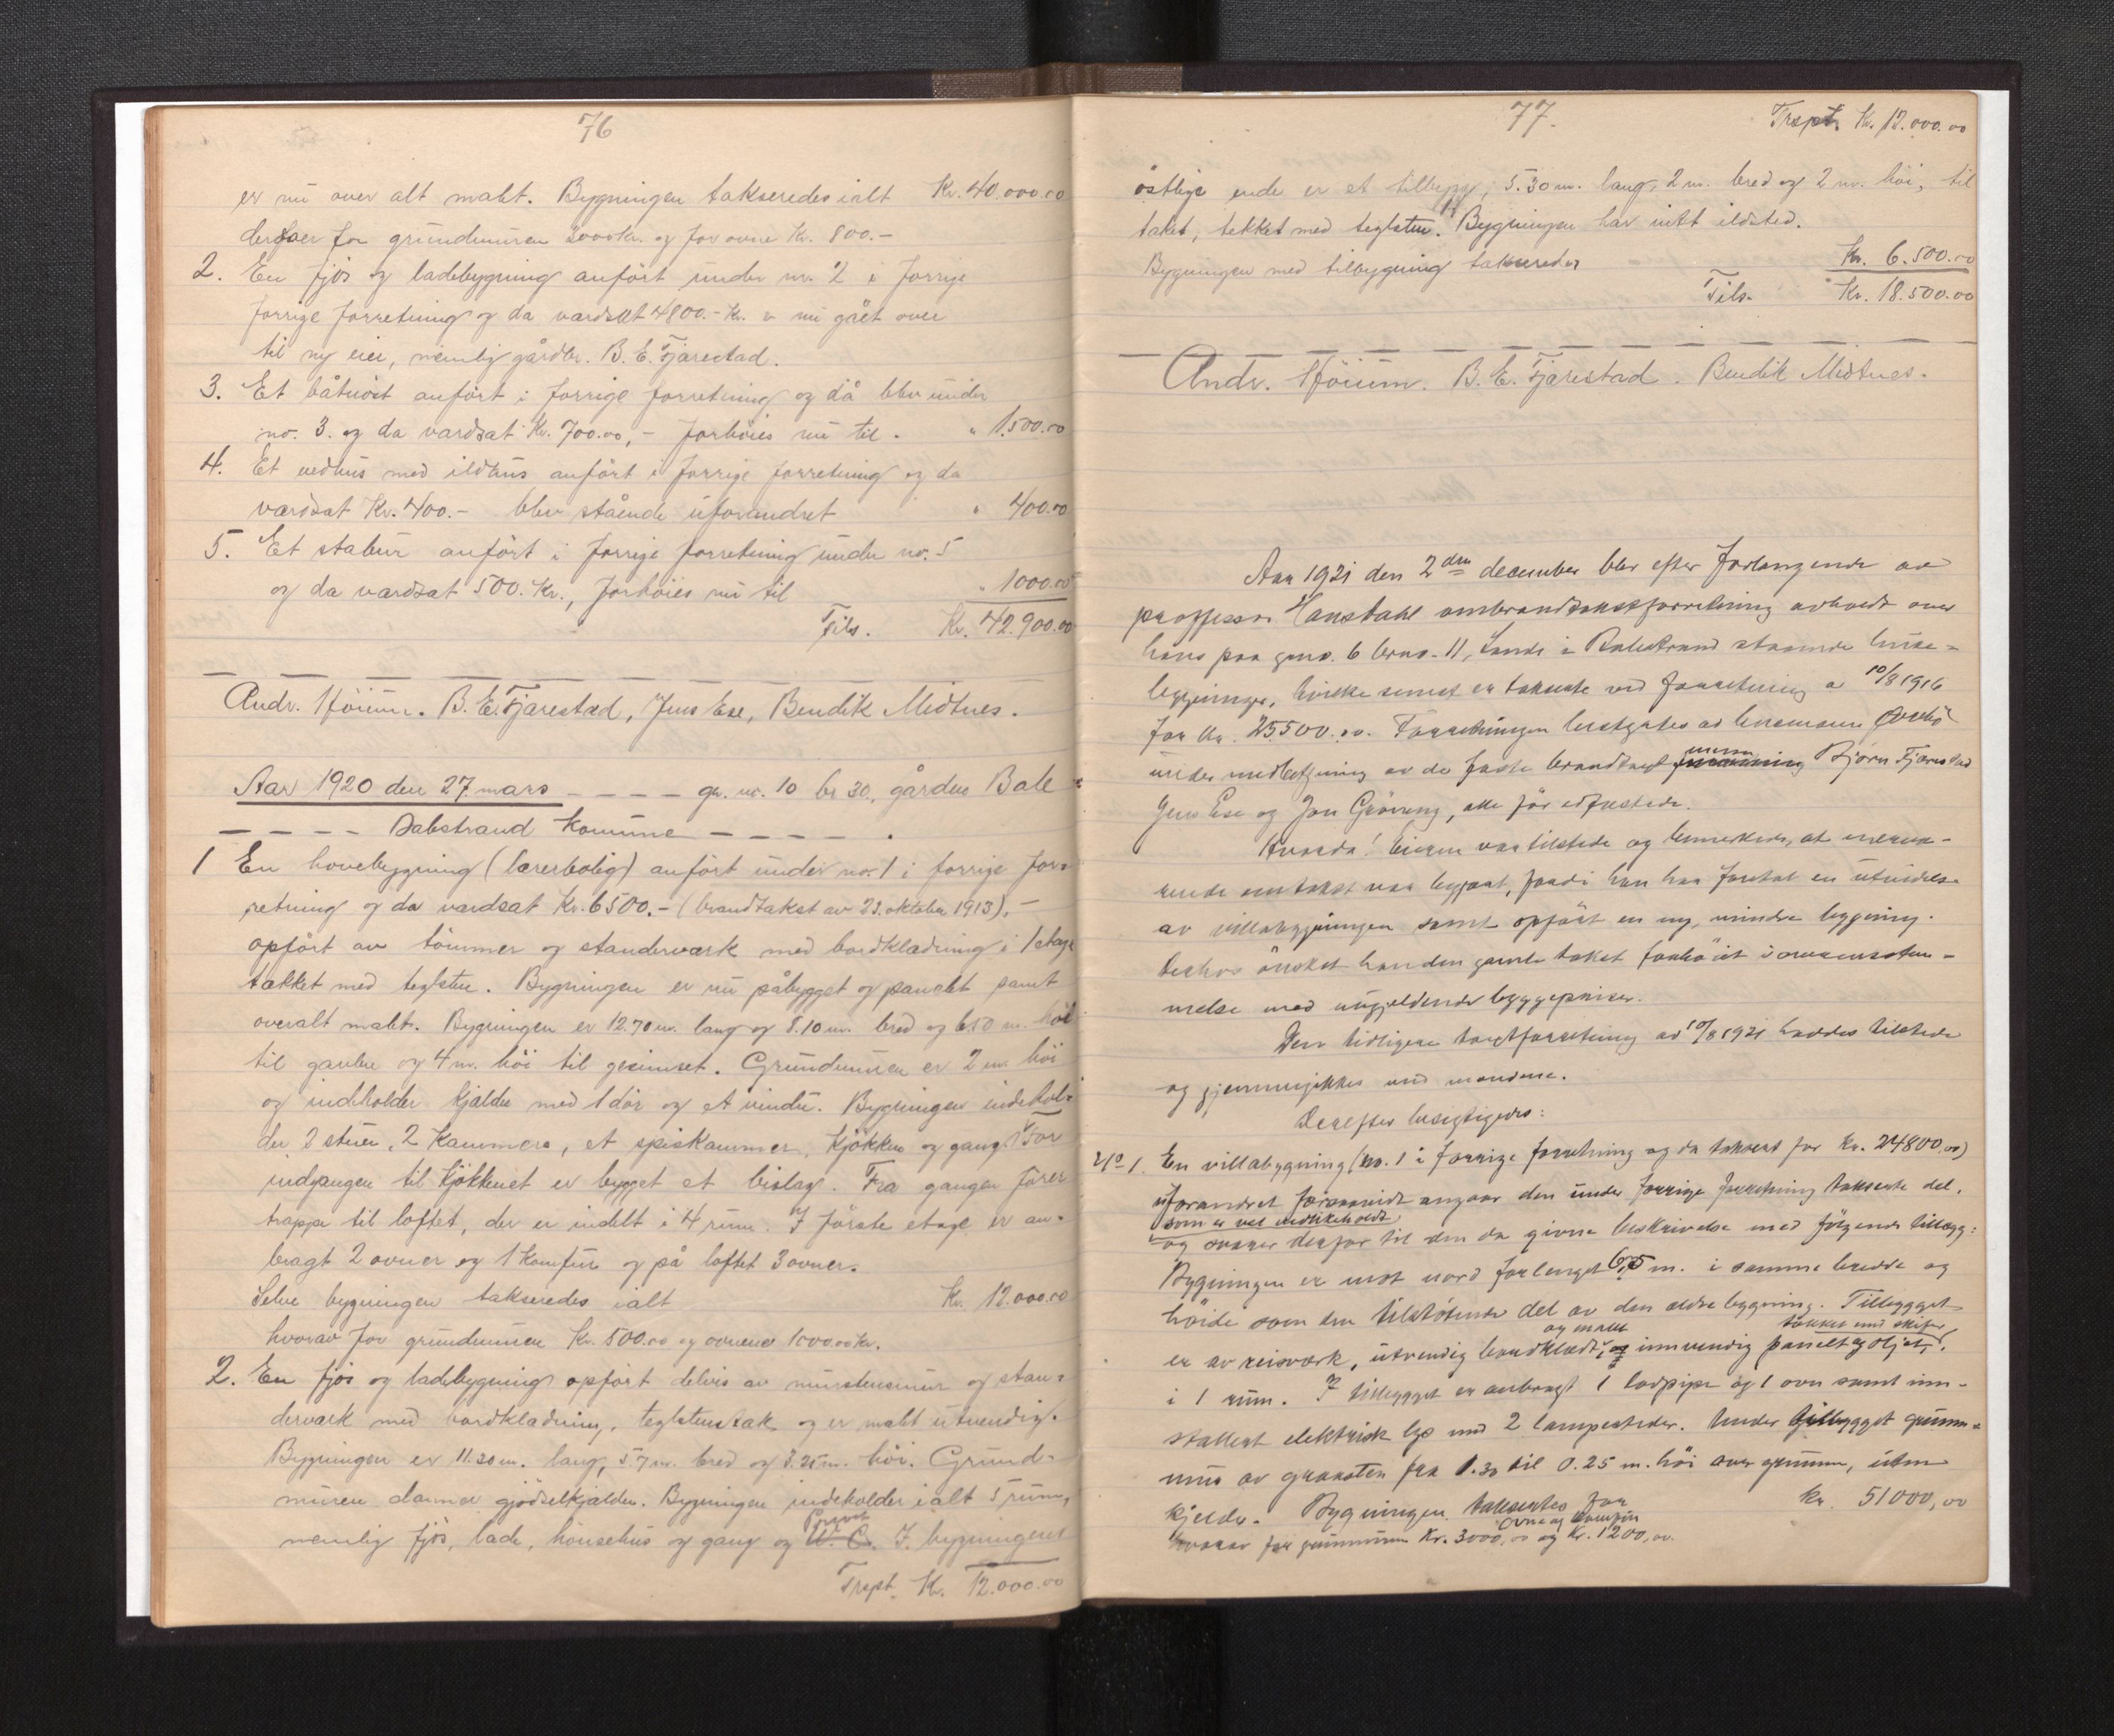 76
er nu over alt malt. Bygningen takseredes ialt Kr. 40.000.00
for grundmuren 2000 kr. og for ovne Kr. 800.-
2. En fjös og ladebygning anfört under nr. 2 i forrige
forrige forretning og da værdsat 4800.- Kr. er nu gået over
til ny eier, nemlig gårdbr. B. E. Fjærestad.
3. Et båtnöst anfört i forrige forretning og då blev under
no. 3. og da værdsat Kr. 700.00,- forhöies nu til . " 1.500.00
4. Et vedhus med ildhus anfört i forrige forretning og da
værdsat Kr. 400.- blev stående uforandret " 400.00
5. Et stabur anfört i forrige forretning under no. 5
og da værdsat 500. Kr., forhöies nu til " 1000.00
Tils. Kr. 42.900.00
Andr. Höium. B. E. Fjærestad, Jens Ese, Bendik Midtnes.
Aar 1920 den 27. mars - - - - gr. nr. 10 br 30, gården Bale
- - - - Balestrand Komune - - - - - .
1 En hovebygning (lærerbolig) anfört under no. 1 i forrige for=
retning og da værdsat Kr. 6500.- (brandtakst av 23. oktober 1913),-
opfört av tömmer og standerværk med bordklædning i 1 etage
tækket med teglsten. Bygningen er nu påbygget og panelt samt
overalt malt. Bygningen er 12.70 m. lang og 8.10 m. bred og 6.50 m. höi
til gavlen og 4 m. höi til gesimset. Grundmuren er 2 m. höi
og indeholder kjælder med 1 dör og et vindu. Bygningen indehol=
der 3 stuer, 2 Kammers, et spiskammer, kjökken og gang. For
indgangen til kjökkenet er bygget et bislag. Fra gangen förer
trappe til loftet, der er indelt i 4 rum. I förste etage er an=
bragt 2 ovner og 1 komfur og på loftet 3 ovner.
Selve bygningen takseredes ialt Kr. 12.000.00
hvorav for grundmuren Kr. 500.00 og ovnene 1000.00 kr.
2. En fjös og ladebygning opfört delvis av murstensmur og stan=
derværk med bordklædning, teglstenstak og er malt utvendig.
Bygningen er 11.20 m. lang, 5.7 m. bred og 3.25 m. höi. Grund=
muren danner gjödselkjælder. Bygningen indeholder ialt 5 rum,
Privet
nemlig fjös, lade, hönsehus og gang og W. C. I bygningens
Trspt. Kr. 12.000.00
77.
Trspt. Kr. 12.000.00
östlige ende er et tilbygg, 5.30 m. lang, 2 m. bred og 2 m. höi, til
taket, tekket med teglsten. Bygningen har intet ildsted.
Bygningen med tilbygning takseredes Kr. 6.500.00
Tils. Kr. 18.500.00
Andr. Höium. B. E. Fjærestad. Bendik Midtnes.
Aar 1921 den 2den december blev efter forlangende av
professor Hans Dahl ombrandtakstforretning avholdt over
hans paa gno. 6 brno. 11, Sande i Balestrand staaende huse=
bygninger, hvilke senest er takserte ved forretning av 10/8 1916
for Kr. 25500.00. Forretningen bestyrtes av lensmann
under medbetjening av de faste brandtakst menn Bjørn Fjærestad
Jens Ese og Jon Gröneng, alle för edfæstede.
Hvorda! Eieren var tilstede og bemerkede, at nærvæ-
rende omtakst var begjært, fordi han har foretat en utvidelse
av villabygningen samt opfört en ny, mindre bygning.
Derhos önsket han den gamle takst forhöiet i overensstem-
melse med nugjeldende byggepriser.
Den tidligere takstforretning av 10/8 1921 haddes tilstede
og gjennemgikkes med mændene.
Derefter besigtigedes:
No 1. En villabygning (no. 1 i forrige forretning og da taksert for Kr. 24800,00)
uforandret forsaavidt angaar den under forrige forretning takserte del,
som er vel vedlikeholdt
og svarer derfor til den da givne beskrivelse med følgende tillægg:
Bygningen er mot nord forlenget 6,5 m. i samme bredde og
höide som den tilstötende del av den ældre bygning. Tilbygget
og malt tækket med skifer
er av reisværk, utvendig bordklædt, og innvendig panelt og oljet,
i 1 rum. I tilbygget er anbragt 1 lodpipe og 1 ovn samt inn-
stallert elektrisk lys med 2 lampesteder. Under tilbygget grunn=
mur av graasten fra 1.30 til 0.25 m. höi over grunnen, uten
kjelder. Bygningen taksertes for Kr. 51000,00
ovne og komfur
hvorav for grunnmuren Kr. 3000,00 og Kr. 1200,00.